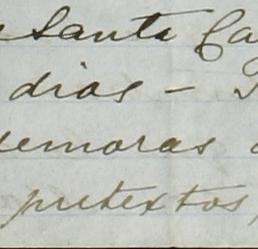 Santa Ca
dias —
demoras
pretextos,